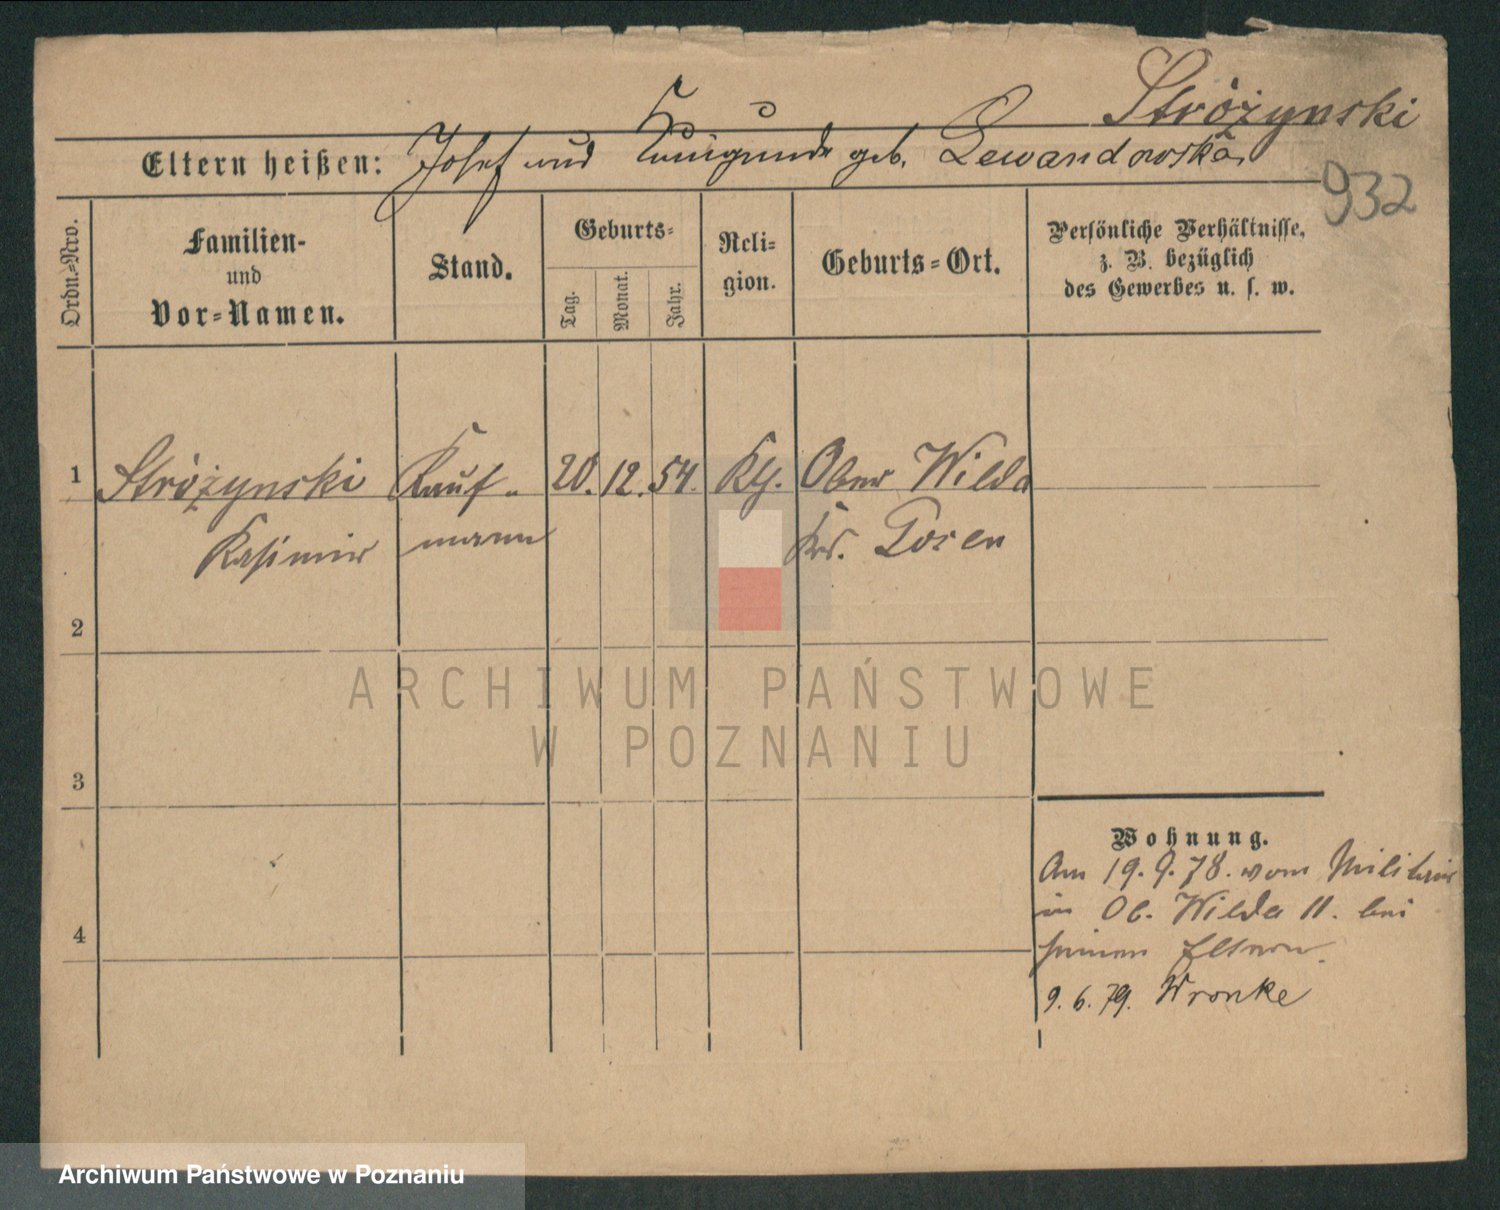 Stróżynski
Eltern heißen: Josef und Kunigunde geb. Lewandowska
932
Ordn.-Nro.
Familien-
und
Vor-Namen.
Stand.
Geburts-
Tag.
Monat.
Jahr.
Reli-
gion.
Geburts-Ort.
Persönliche Verhältnisse,
z. B. bezüglich
des Gewerbes u. s. w.
1 Stróżynski Kauf- 20. 12. 54. Kth. Ober Wilda
Kasimir mann Krs. Posen
2
3
4
Wohnung.
Am 19. 9. 78. vom Militair
in Ob. Wilda 11. bei
seinen Eltern.
9. 6. 79. Wronke
ARCHIWUM PAŃSTWOWE
W POZNANIU
Archiwum Państwowe w Poznaniu